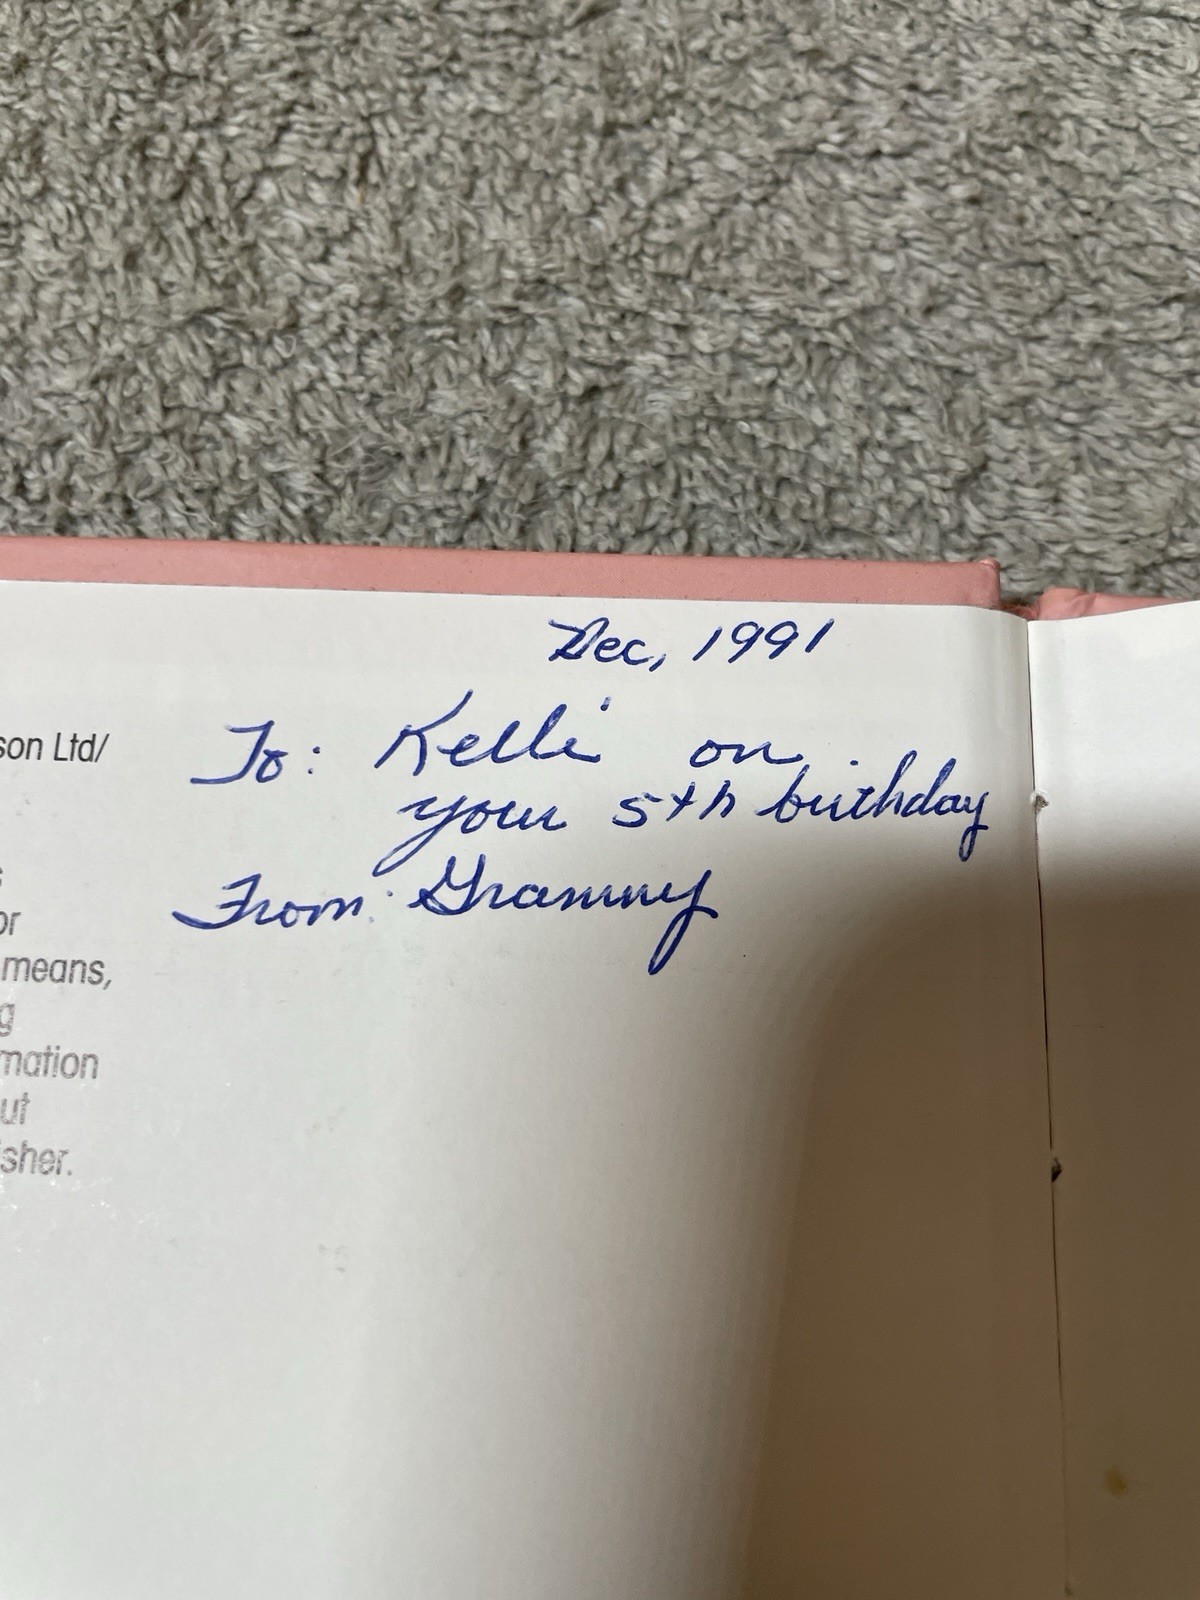 Dec, 1991
To: Kelli on
your 5th birthday
From: Grammy
son Ltd/
s
or
means,
g
mation
ut
isher.